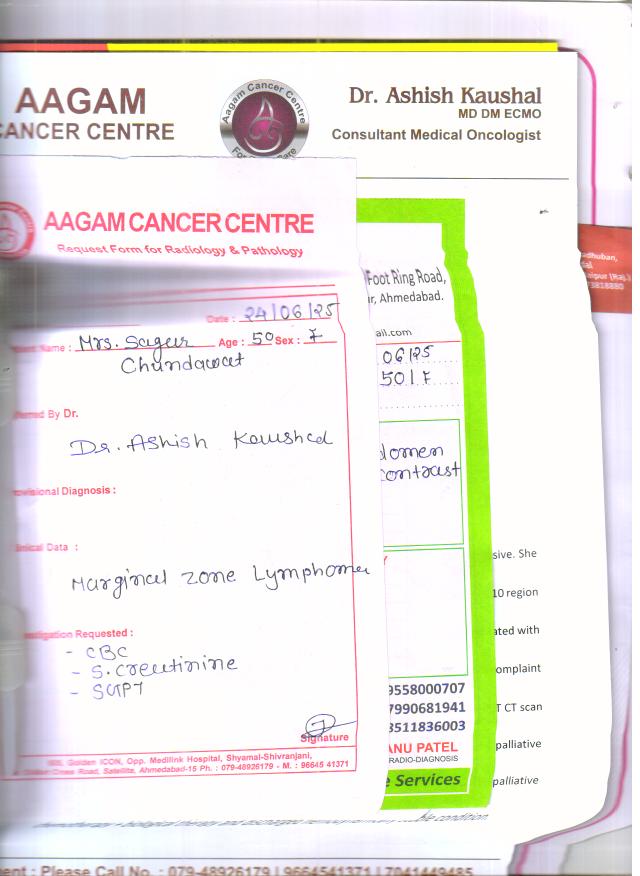 AAGAM
CANCER CENTRE
Aagam Cancer Centre
Dr. Ashish Kaushal
MD DM ECMO
Consultant Medical Oncologist
AAGAM CANCER CENTRE
Request Form for Radiology & Pathology
Date : 24/06/25
Name : Mrs. Sagar Age : 50 Sex : F
Chundawat
By Dr.
Dr. Ashish Kaushal
Diagnosis :
Data :
Marginal Zone Lymphoma
Requested :
- CBC
- S. Creatinine
- SGPT
Signature
Golden ICON, Opp. Medilink Hospital, Shyamal-Shivranjani,
Cross Road, Satellite, Ahmedabad-15 Ph. : 079-48926179 - M. : 96645 41371
Foot Ring Road,
Ahmedabad.
ail.com
06/25
50/F
domen
contrast
9558000707
7990681941
8511836003
ANU PATEL
RADIO-DIAGNOSIS
e Services
adhuban,
(Raj.)
sive. She
10 region
ated with
omplaint
T CT scan
palliative
palliative
condition
: Please Call No. : 079-48926179 | 9664541371 | 7041449485